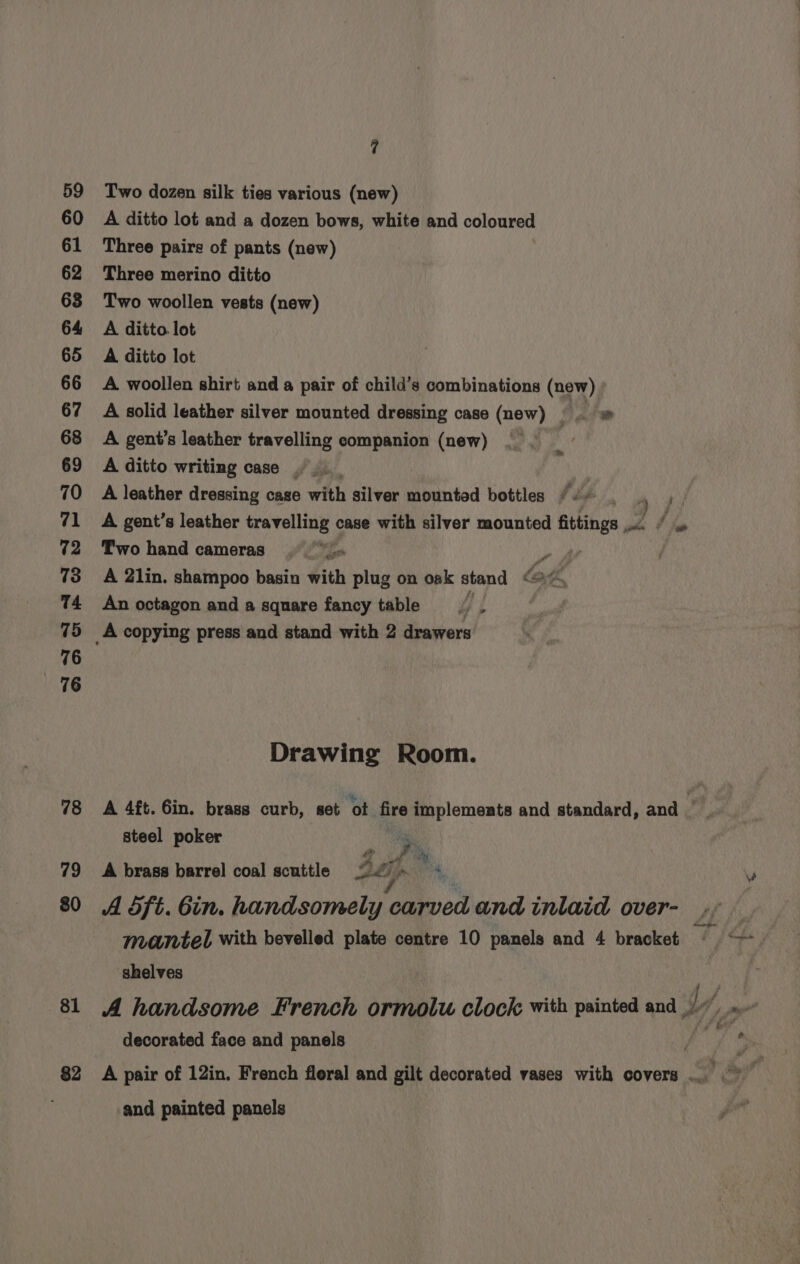 7
59 Two dozen silk ties various (new)
60 A ditto lot and a dozen bows, white and coloured
61 Three pairs of pants (new)
62 Three merino ditto
63 Two woollen vests (new)
64 A ditto lot
65 A ditto lot
66 A woollen shirt and a pair of child's combinations (new)
67 A solid leather silver mounted dressing case (new)
68 A gent's leather travelling companion (new)
69 A ditto writing case
70 A leather dressing case with silver mounted bottles
71 A gent's leather travelling case with silver mounted fittings
72 Two hand cameras
73 A 21in. shampoo basin with plug on oak stand
74 An octagon and a square fancy table
75 A copying press and stand with 2 drawers
76
76
Drawing Room.
78 A 4ft. 6in. brass curb, set of fire implements and standard, and
steel poker
79 A brass barrel coal scuttle
80 A 5ft. 6in. handsomely carved and inlaid over-
mantel with bevelled plate centre 10 panels and 4 bracket
shelves
81 A handsome French ormolu clock with painted and
decorated face and panels
82 A pair of 12in. French floral and gilt decorated vases with covers
and painted panels